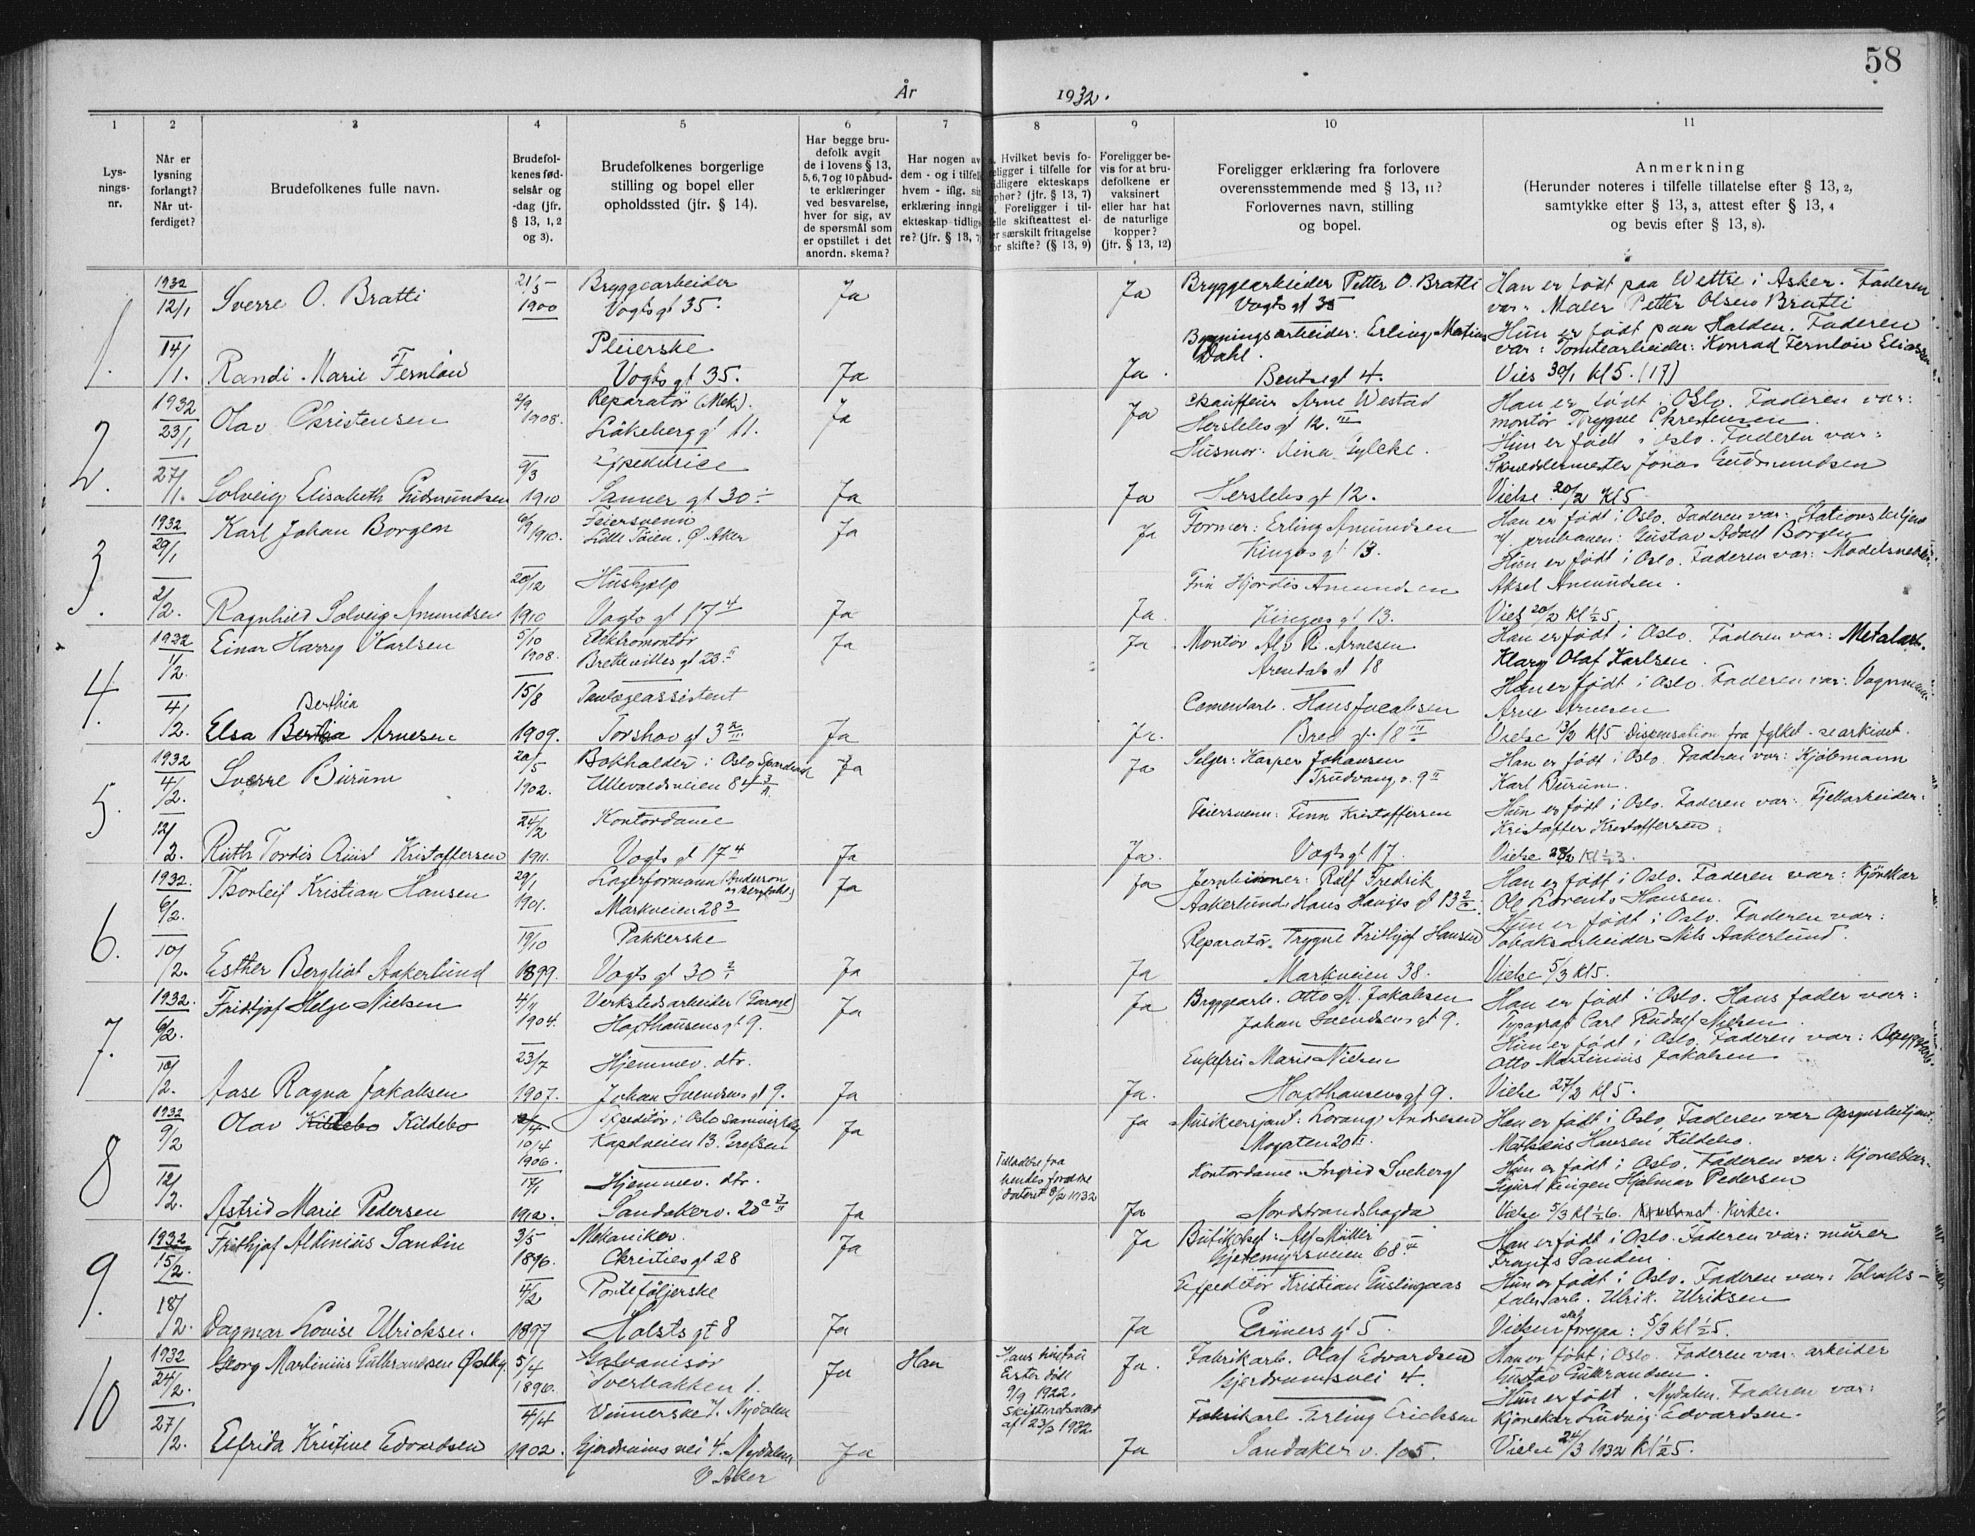 58
År 1932.
1 2 3 4 5 6 7 8 9 10 11
Lys-
nings-
nr.
Når er
lysning
forlangt?
Når ut-
ferdiget?
Brudefolkenes fulle navn.
Brudefol-
kenes fød-
selsår og
-dag (jfr.
§ 13, 1, 2
og 3).
Brudefolkenes borgerlige
stilling og bopel eller
opholdssted (jfr. § 14).
Har begge bru-
defolk avgit
de i lovens § 13,
5, 6, 7 og 10 påbud-
te erklæringer
ved besvarelse,
hver for sig, av
de spørsmål som
er opstillet i det
anordn. skema?
Har nogen av
dem - og i tilfelle
hvem - iflg. sin
erklæring inngå
ekteskap tidlige
re? (jfr. § 13, 7)
Hvilket bevis fo-
religger i tilfelle for
tidligere ekteskaps
ophør? (jfr. § 13, 7)
Foreligger i til-
felle skifteattest el-
ler særskilt fritagelse
for skifte? (§ 13, 9)
Foreligger be-
vis for at bru-
defolkene er
vaksinert
eller har hat
de naturlige
kopper?
(jfr. § 13, 12)
Foreligger erklæring fra forlovere
overensstemmende med § 13, 11?
Forlovernes navn, stilling
og bopel.
Anmerkning
(Herunder noteres i tilfelle tillatelse efter § 13, 2,
samtykke efter § 13, 3, attest efter § 13, 4
og bevis efter § 13, 8).
1.
1932
12/1
14/1.
Sverre O. Bratli
21/5
1900
Bryggearbeider
Vogts gt 35.
Ja
Ja
Bryggearbeider Petter O. Bratli
Vogts gt 35
Han er født paa Wettre i Asker. Faderen
var: Maler Petter Olsen Bratli
Randi Marie Fernlöw
Pleierske
Vogts gt 35.
Ja
Ja.
Bygningsarbeider: Erling
Dahl.
Bentse gt 4.
Hun er født paa Halden. Faderen
var: Tomtearbeider: Konrad Fernlöw
Vies 30/1 kl 5. (17)
2.
1932
23/1
27/1.
Olav Christensen
2/9
1908.
Reparatør (Mek.).
Låkeberggt 11.
Ja
Ja
Chauffeur Arne Westad
Herslebs gt 12. III
Han er født i Oslo. Faderen var:
montør Trygve Christensen.
Solveig Elisabeth Gudmundsen
9/3
1910
Expeditrice
Sanner gt 30
Ja
Ja
Husmor:
Herslebs gt 12.
Hun er født i Oslo. Faderen var:
Skreddermester Jonas Gudmundsen
Vielse 20/2 kl 5
3.
1932
29/1
2/2.
Karl Johan Borgen
6/9
1910.
Feiersvenn
Lille Tøien. Ø. Aker
Ja
Ja
Former: Erling Amundsen
Kingos gt 13.
Han er født i Oslo. Faderen var:
Gustav Adolf Borgen
Ragnhild Solveig Amundsen
20/12
1910
Hushjelp
Vogts gt 17 4
Ja
Ja.
Fru Hjordis Amundsen
Kingos gt 13.
Hun er født i Oslo. Faderen var:
Aksel Amundsen.
Vies 20/2 kl ½5.
4.
1932
1/2.
4/2.
Einar Harry Karlsen
5/10
1908.
Elektromontør
Brettevilles gt 23. II
Ja
Ja
Montør Alv R. Arnesen
Arendals gt 18
Han er født i Oslo. Faderen var: Metalarb.
Olaf Karlsen.
Berthia
Elsa Arnesen
15/8
1909.
Tanlægeassistent
Torshov gt 3
Ja
Ja.
Cementarb. Hans Jacobsen
Bred gt 18 II
født i Oslo. Faderen var: Vognmann
Arne Arnesen
Vielse 13/3 kl 5 Dispensation fra fylket - se arkivet.
5.
1932
4/2.
12/2.
Sverre Burum
20/5
1902.
Bokholder i Oslo Sparebank
Ullevoldsveien 84
Ja
Ja
Selger: Kasper Johansen
Trudvang v. 9 II
Han er født i Oslo. Faderen var: Kjøbmann
Karl Burum.
Ruth Tordis Kristoffersen
24/2
1911.
Kontordame
Vogts gt 17 4
Ja
Ja.
Feiersvenn: Finn Kristoffersen
Vogts gt 17.
Hun er født i Oslo. Faderen var: Fjellarbeider.
Kristoffer Kristoffersen.
Vielse 28/2 kl ½3.
6.
1932.
6/2.
10/2.
Thorleif Kristian Hansen
29/1
1901.
Lagerformann
Markveien 28 3
Ja
Ja
Rolf Fredrik
Aakerlund Hans Hauges gt 13
Han er født i Oslo. Faderen var: Kjørekar
Ole Lorents Hansen.
Esther Bergliot Aakerlund
19/10
1899.
Pakkerske
Vogts gt 30
Ja
Ja
Reparatør. Trygve Frithjof Hansen
Markveien 38.
Hun er født i Oslo. Faderen var:
Tobaksarbeider Nils Aakerlund.
Vielse 5/3 kl 5.
7.
1932.
6/2.
10/2.
Fridtjof Helge Nielsen
4/11
1904.
Verkstedsarbeider (Garage)
Hoffhausens gt 9.
Ja
Ja
Bryggearb. Otto M. Jakobsen
Johan Svendsens gt 9.
Han er født i Oslo. Hans fader var:
Typograf Carl Rudolf Nielsen.
Aase Ragna Jakobsen
23/7
1907.
Hjemmev. dtr.
Johan Svendsens gt 9.
Ja
Ja.
Enkefru Marie Nielsen
Hoffhausens gt 9.
Hun er født i Oslo. Faderen var:
Otto Martinius Jakobsen
Vielse 27/2 kl 5.
8
1932
9/2
12/2.
Olav Kildebo Kildebo
10/4
1906.
Expeditør i Oslo
Kapelveien 13. Grefsen
Ja
Ja
Andresen
Mogaten 20 II.
Han er født i Oslo. Faderen var
Mathæus Hansen Kildebo.
Astrid Marie Pedersen
17/1
1912.
Hjemmev. dtr.
Sandakerv. 20
Ja
Tilladelse fra
hendes foreldre
dateret 8/2 1932
Ja
Kontordame Ingrid Sveberg
Nordstrandshøgda
Hun er født i Oslo. Faderen var: Kjørekar
Sigurd Kingen Hjalmar Pedersen
Vielse 5/3 kl ½6. Kirken.
9.
1932
15/2.
18/2.
Frithjof Aldinius Sandin
3/5
1896.
Mekaniker.
Christies gt 28
Ja
Ja
Alf Møller
Gjetemyrsveien 68 II
Han er født i Oslo. Faderen var: murer
Frants Sandin.
Dagmar Lovise Ulricksen.
4/2
1897
Porteføljerske
Holsts gt 8
Ja
Ja
Expeditør Kristian
Grüners gt 5.
Hun er født i Oslo. Faderen var: Tobaks-
Ulrik. Ulriksen
Vielsen skal foregaa: 5/3 kl ½5.
10
1932
24/2.
27/2.
Georg Martinius Gulbrandsen Østby
5/4
1896.
Galvanisør
Tverbakken 1.
Ja
Han
Hans hustru
Ester døde
9/9 1922.
Skifteretsattest
af 23/2 1932
Ja.
Fabrikarb. Olaf Edvardsen
Gjerdrumsvei 4.
Han er født i Oslo. Faderen var: arbeider
Gustav Gulbrandsen.
Elfrida Kristine Edvardsen
4/4
1902.
Vinnerske v. Nydalen
Gjerdrums vei 4. Nydalen
V. Aker
Ja
Ja
Fabrikarb. Erling Erichsen
Sandaker v. 105.
Hun er født i Nydalen. Faderen var:
Kjørekar Ludvig Edvardsen.
Vielse 24/3 1932 kl ½5.